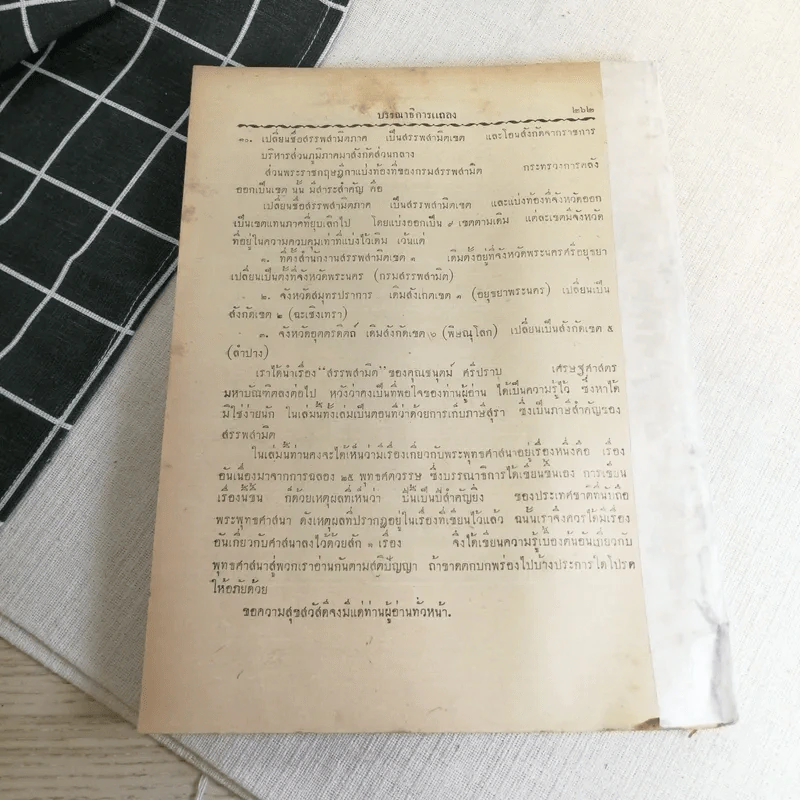 บรรณาธิการแถลง ๒๖๒
๑๐. เปลี่ยนชื่อสรรพสามิตภาค เป็นสรรพสามิตเขต และโอนสังกัดจากราชการ
บริหารส่วนภูมิภาคมาสังกัดส่วนกลาง
ส่วนพระราชกฤษฎีกาแบ่งท้องที่ของกรมสรรพสามิต กระทรวงการคลัง
ออกเป็นเขต นั้น มีสาระสำคัญ คือ
เปลี่ยนชื่อสรรพสามิตภาค เป็นสรรพสามิตเขต และแบ่งท้องที่จังหวัดออก
เป็นเขตแทนภาคที่ยุบเลิกไป โดยแบ่งออกเป็น ๙ เขตตามเดิม แต่ละเขตมีจังหวัด
ที่อยู่ในความควบคุมเท่าที่แบ่งไว้เดิม เว้นแต่
๑. ที่ตั้งสำนักงานสรรพสามิตเขต ๑ เดิมตั้งอยู่ที่จังหวัดพระนครศรีอยุธยา
เปลี่ยนเป็นตั้งที่จังหวัดพระนคร (กรมสรรพสามิต)
๒. จังหวัดสมุทรปราการ เดิมสังกัดเขต ๑ (อยุธยาพระนคร) เปลี่ยนเป็น
สังกัดเขต ๒ (ฉะเชิงเทรา)
๓. จังหวัดอุตตรดิตถ์ เดิมสังกัดเขต ๖ (พิษณุโลก) เปลี่ยนเป็นสังกัดเขต ๕
(ลำปาง)
เราได้นำเรื่อง "สรรพสามิต" ของคุณธนุตม์ ศรีปราบ เศรษฐศาสตร
มหาบัณฑิตลงต่อไป หวังว่าคงเป็นที่พอใจของท่านผู้อ่าน ได้เป็นความรู้ไว้ ซึ่งหาได้
มิใช่ง่ายนัก ในเล่มนี้ทั้งเล่มเป็นตอนที่ว่าด้วยการเก็บภาษีสุรา ซึ่งเป็นภาษีสำคัญของ
สรรพสามิต
ในเล่มนี้ท่านคงจะได้เห็นว่ามีเรื่องเกี่ยวกับพระพุทธศาสนาอยู่เรื่องหนึ่งคือ เรื่อง
อันเนื่องมาจากการฉลอง ๒๕ พุทธศตวรรษ ซึ่งบรรณาธิการได้เขียนขึ้นเอง การเขียน
เรื่องนี้ขึ้น ก็ด้วยเหตุผลที่เห็นว่า ปีนี้เป็นปีสำคัญยิ่ง ของประเทศชาติที่นับถือ
พระพุทธศาสนา ดังเหตุผลที่ปรากฏอยู่ในเรื่องที่เขียนไว้แล้ว ฉนั้นเราจึงควรได้มีเรื่อง
อันเกี่ยวกับศาสนาลงไว้ด้วยสัก ๑ เรื่อง จึงได้เขียนความรู้เบื้องต้นอันเกี่ยวกับ
พุทธศาสนาสู่พวกเราอ่านกันตามสติปัญญา ถ้าขาดตกบกพร่องไปบ้างประการใดโปรด
ให้อภัยด้วย
ขอความสุขสวัสดีจงมีแด่ท่านผู้อ่านทั่วหน้า.